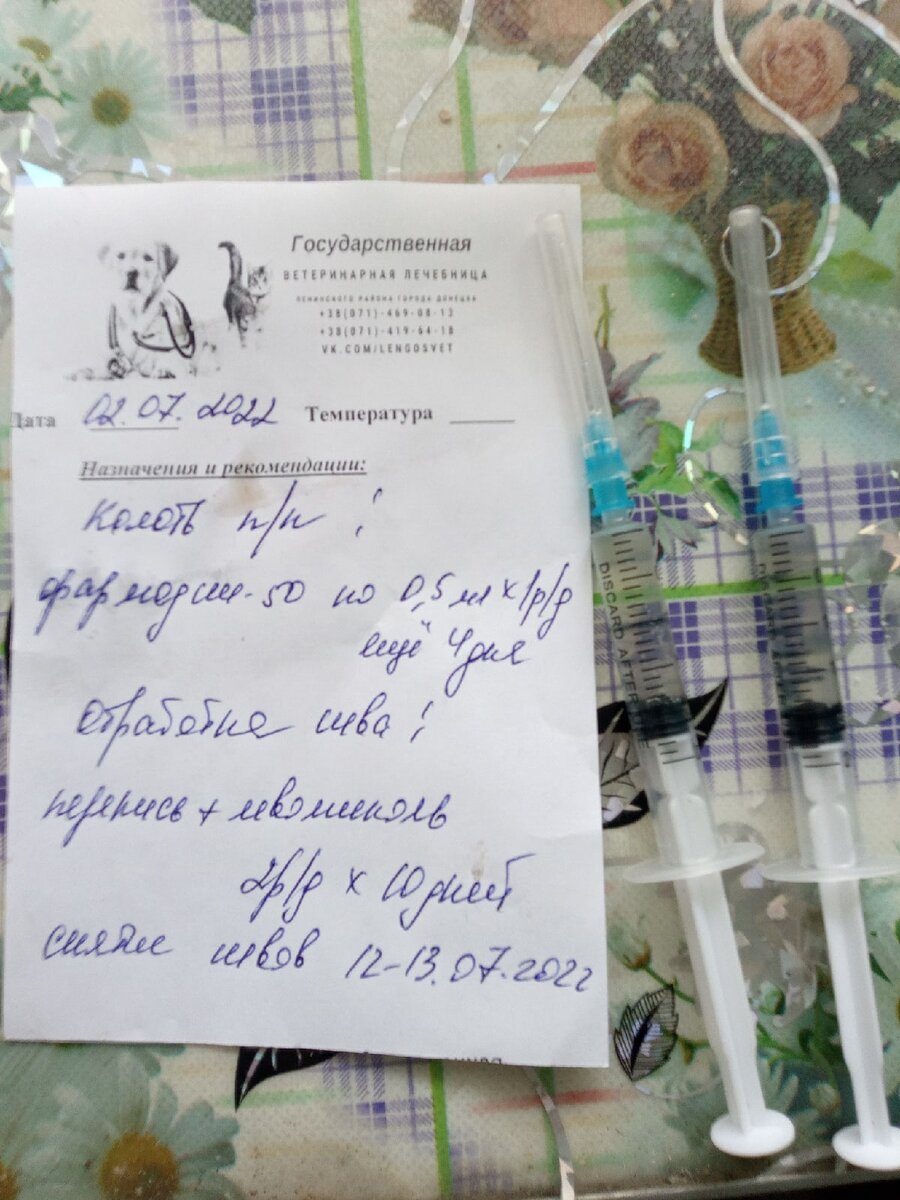 Государственная
ВЕТЕРИНАРНАЯ ЛЕЧЕБНИЦА
ЛЕНИНСКОГО РАЙОНА ГОРОДА ДОНЕЦКА
+38(071)-469-08-13
+38(071)-419-64-18
VK.COM/LENGOSVET
Дата 02.07.2022 Температура
Назначения и рекомендации:
Колоть п/к :
50 по 0,5 мл х 1р/д
ещё 4 дня
Обработка шва :
перекись + левомиколь
2р/д х 10 дней
снятие швов 12-13.07.2022
DISCARD AFTER